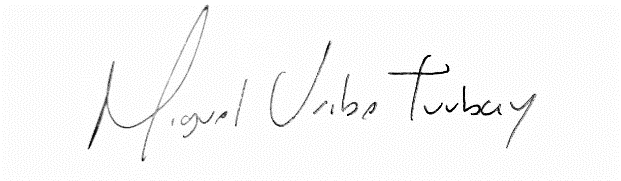 Miguel Uribe Turbay